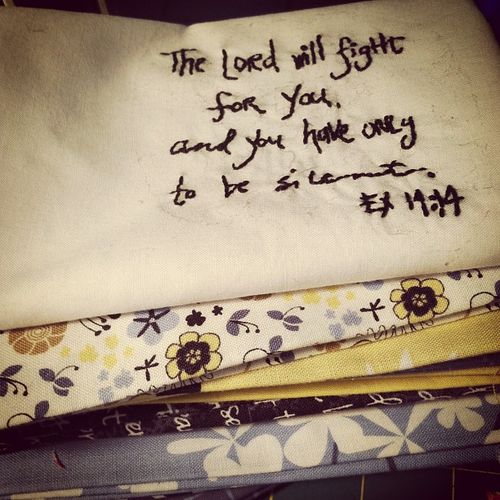 The Lord will fight
for you,
and you have only
to be
Ex 14:14